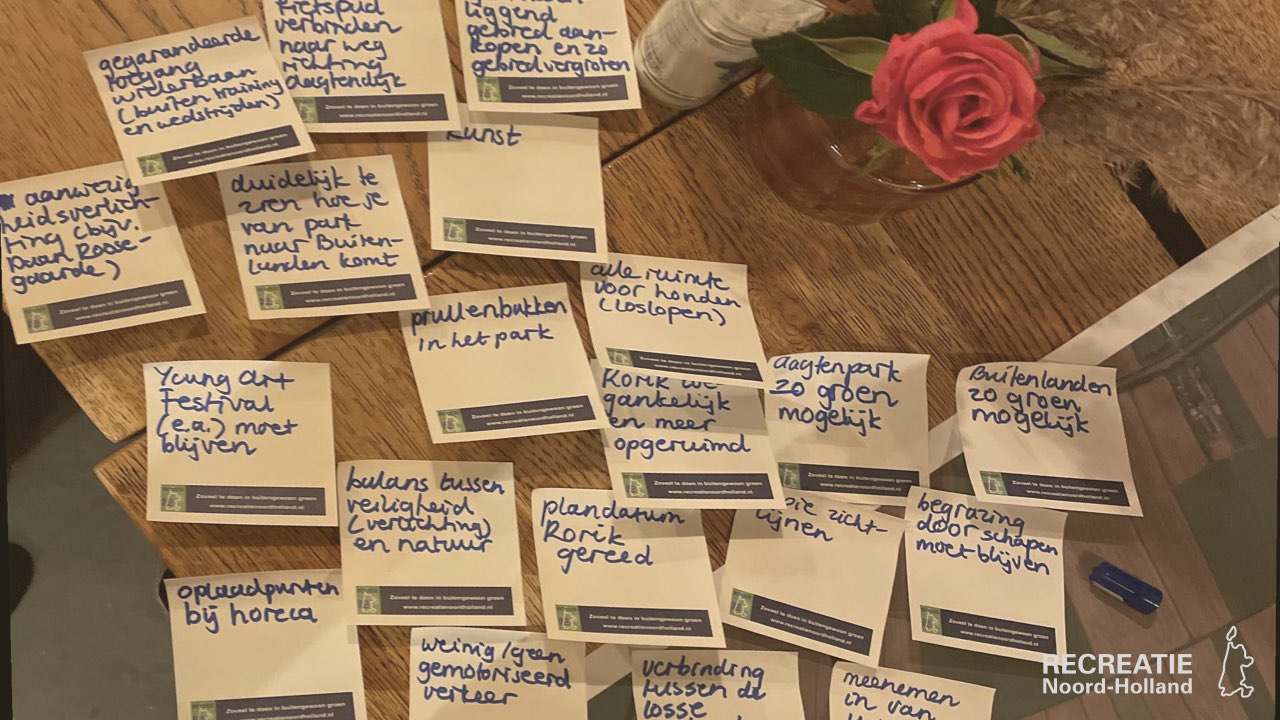 gegarandeerde
toegang
wielerbaan
(buiten training
en wedstrijden)
Zoveel te doen in buitengewoon groen
www.recreatienoordholland.nl
fietspad
verbinden
naar weg
richting
aagtendijk
Zoveel te doen in buitengewoon groen
www.recreatienoordholland.nl
liggend
gebied aan-
kopen en zo
gebied vergroten
Zoveel te doen in buitengewoon groen
www.recreatienoordholland.nl
kunst
Zoveel te doen in buitengewoon groen
www.recreatienoordholland.nl
aanwezig
heidsverlich-
ting (bijv.
Daan Roose-
gaarde)
Zoveel te doen in buitengewoon groen
www.recreatienoordholland.nl
duidelijk te
zien hoe je
van park
naar Buiten-
landen komt
Zoveel te doen in buitengewoon groen
www.recreatienoordholland.nl
prullenbakken
in het park
Zoveel te doen in buitengewoon groen
www.recreatienoordholland.nl
alle ruimte
voor honden
(loslopen)
Zoveel te doen in buitengewoon groen
www.recreatienoordholland.nl
Young Art
Festival
(e.a.) moet
blijven
Zoveel te doen in buitengewoon groen
www.recreatienoordholland.nl
Rorik
gankelijk
en meer
opgeruimd
Zoveel te doen in buitengewoon groen
www.recreatienoordholland.nl
aagtenpark
zo groen
mogelijk
Zoveel te doen in buitengewoon groen
www.recreatienoordholland.nl
Buitenlanden
zo groen
mogelijk
Zoveel te doen in buitengewoon groen
www.recreatienoordholland.nl
balans tussen
veiligheid
(verlichting)
en natuur
Zoveel te doen in buitengewoon groen
www.recreatienoordholland.nl
plandatum
Rorik
gereed
Zoveel te doen in buitengewoon groen
www.recreatienoordholland.nl
zicht-
lijnen
Zoveel te doen in buitengewoon groen
www.recreatienoordholland.nl
begrazing
door schapen
moet blijven
Zoveel te doen in buitengewoon groen
www.recreatienoordholland.nl
oplaadpunten
bij horeca
Zoveel te doen in buitengewoon groen
www.recreatienoordholland.nl
weinig/geen
gemotoriseerd
verkeer
verbinding
tussen de
losse
meenemen
in van
RECREATIE
Noord-Holland